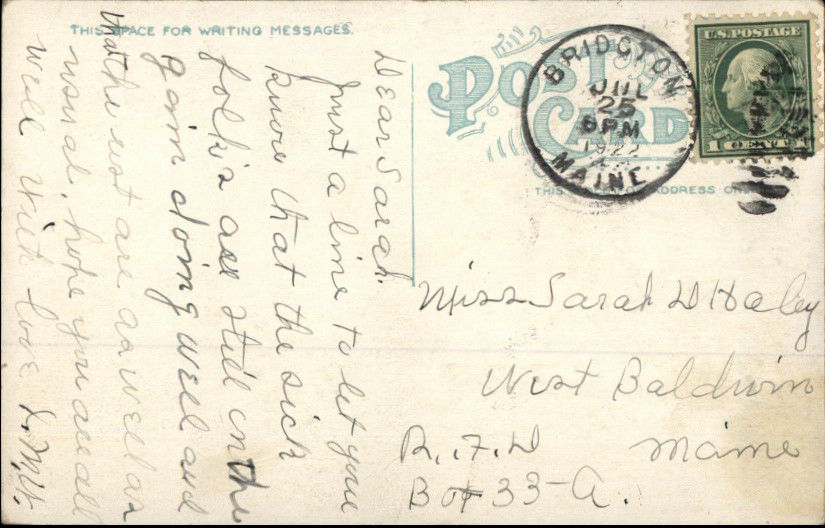 THIS SPACE FOR WRITING MESSAGES.
Dear Sarah.
Just a line to let you
know that the sick
folks are still on the
gain doing well and
that the rest are as well as
usual, hope you are all
well With love
POST CARD
THIS ADDRESS
BRIDGTON
JUL
25
6 PM
1922
MAINE
U.S. POSTAGE
1 CENT
Miss Sarah D Haley
West Baldwin
R.F.D Maine
Box 33-A.